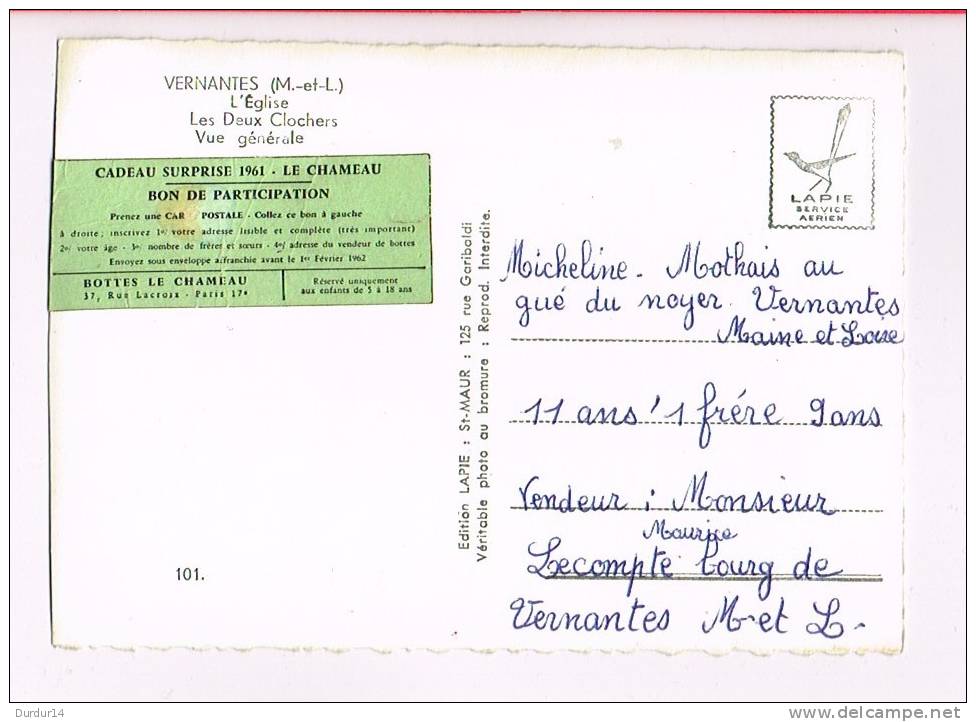 VERNANTES (M.-et-L.)
L'Église
Les Deux Clochers
Vue générale
CADEAU SURPRISE 1961 - LE CHAMEAU
BON DE PARTICIPATION
Prenez une CAR POSTALE - Collez ce bon à gauche
à droite, inscrivez 1º/ votre adresse lisible et complète (très important)
2º/ votre âge - 3º/ nombre de frères et sœurs - 4º/ adresse du vendeur de bottes
Envoyez sous enveloppe affranchie avant le 1er Février 1962
BOTTES LE CHAMEAU
37, Rue Lacroix - Paris 17e
Réservé uniquement
aux enfants de 5 à 18 ans
101.
Edition LAPIE : St-MAUR : 125 rue Garibaldi
Véritable photo au bromure : Reprod. Interdite.
LAPIE
SERVICE
AERIEN
Micheline - Mothais au
gué du noyer. Vernantes
Maine et Loire
11 ans ' 1 frére 9 ans
Vendeur : Monsieur
Maurice
Lecompte bourg de
Vernantes M-et L-
Durdur14
delcampe.net